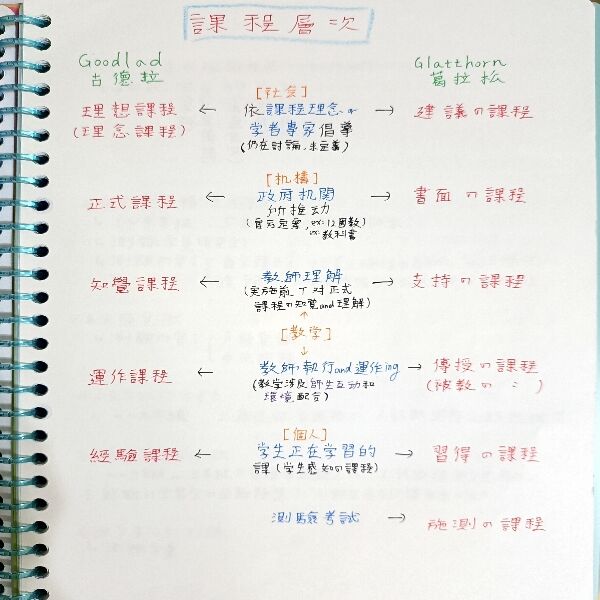 課程層次
Goodlad
古德拉
Glatthorn
葛拉松
[社会]
理想課程 ← 依課程理念or → 建議の課程
(理念課程) 学者專家倡導
(仍在討論,未定義)
[机構]
正式課程 ← 政府机関 → 書面の課程
所推动
(官方定案, ex:12国教)
ex:教科書
知覺課程 ← 教師理解 → 支持の課程
(実施前, T対正式
課程の知覺and理解)
↑
[教学]
↓
運作課程 ← 教師,執行and運作ing → 傳授の課程
(教学涉及師生互动和 (被教の〃〃)
環境配合)
[個人]
經驗課程 ← 学生正在学習的 → 習得の課程
課(学生感知の課程)
測驗考試 → 施測の課程